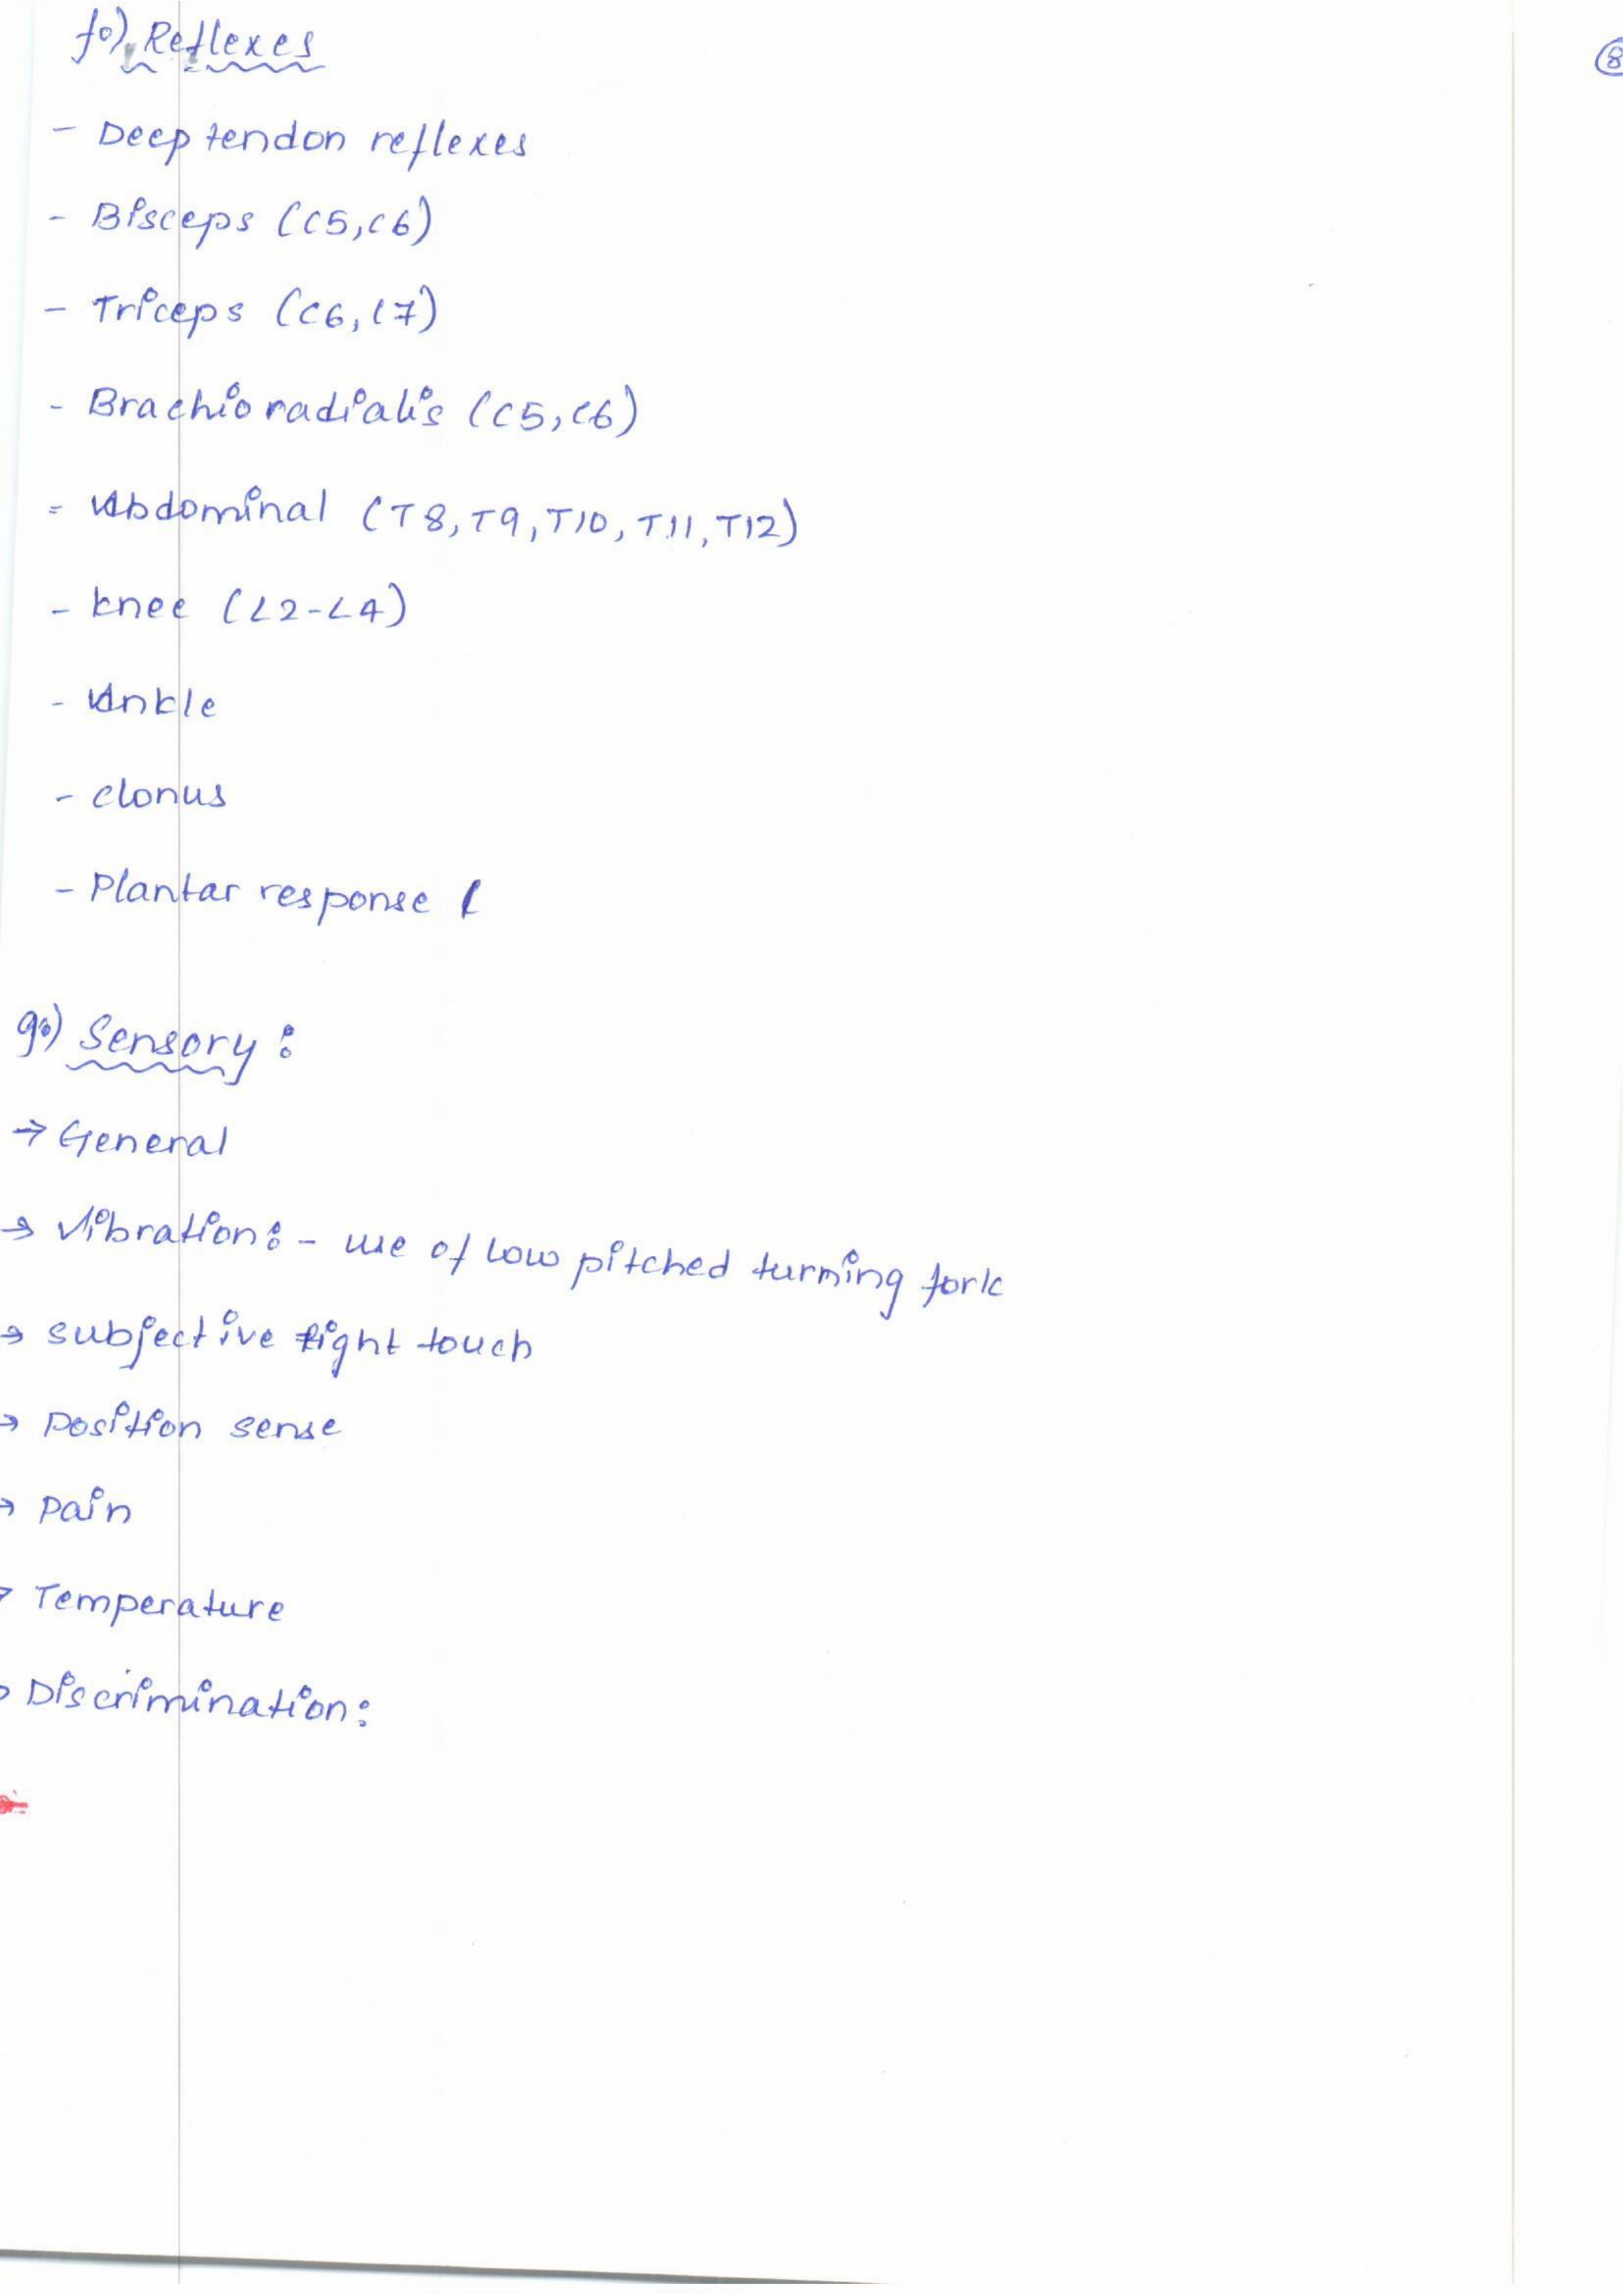 f.) Reflexes
8
- Deep tendon reflexes
- Bisceps (C5, C6)
- Triceps (C6, C7)
- Brachio radialis (C5, C6)
- Abdominal (T8, T9, T10, T11, T12)
- knee (L2-L4)
- Ankle
- clonus
- Plantar response (
g.) Sensory :
→ General
→ Vibration: - use of low pitched turning fork
→ subjective light touch
→ Position sense
→ Pain
→ Temperature
→ Discrimination: